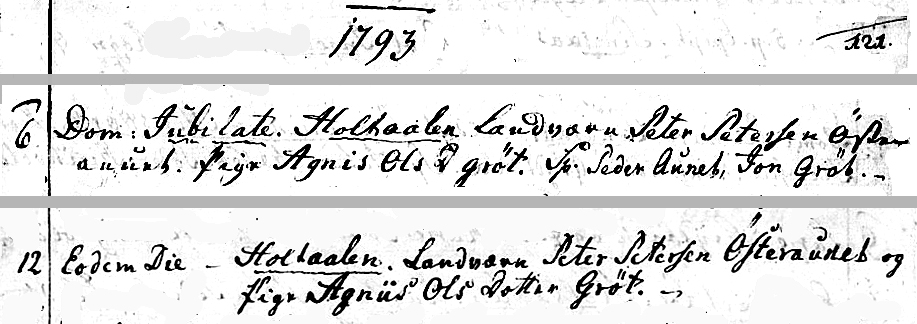 1793
121.
6 Dom: Jubilate. Holtaalen Landværn Peter Petersen Öster
aunet. Pige Agnis Ols D gröt. Sp: Peder Aunet, Jon Gröt. -
12 Eodem Die - Holtaalen. Landværn Peter Petersen Österaunet og
Pige Agniis Ols Dotter Gröt. -